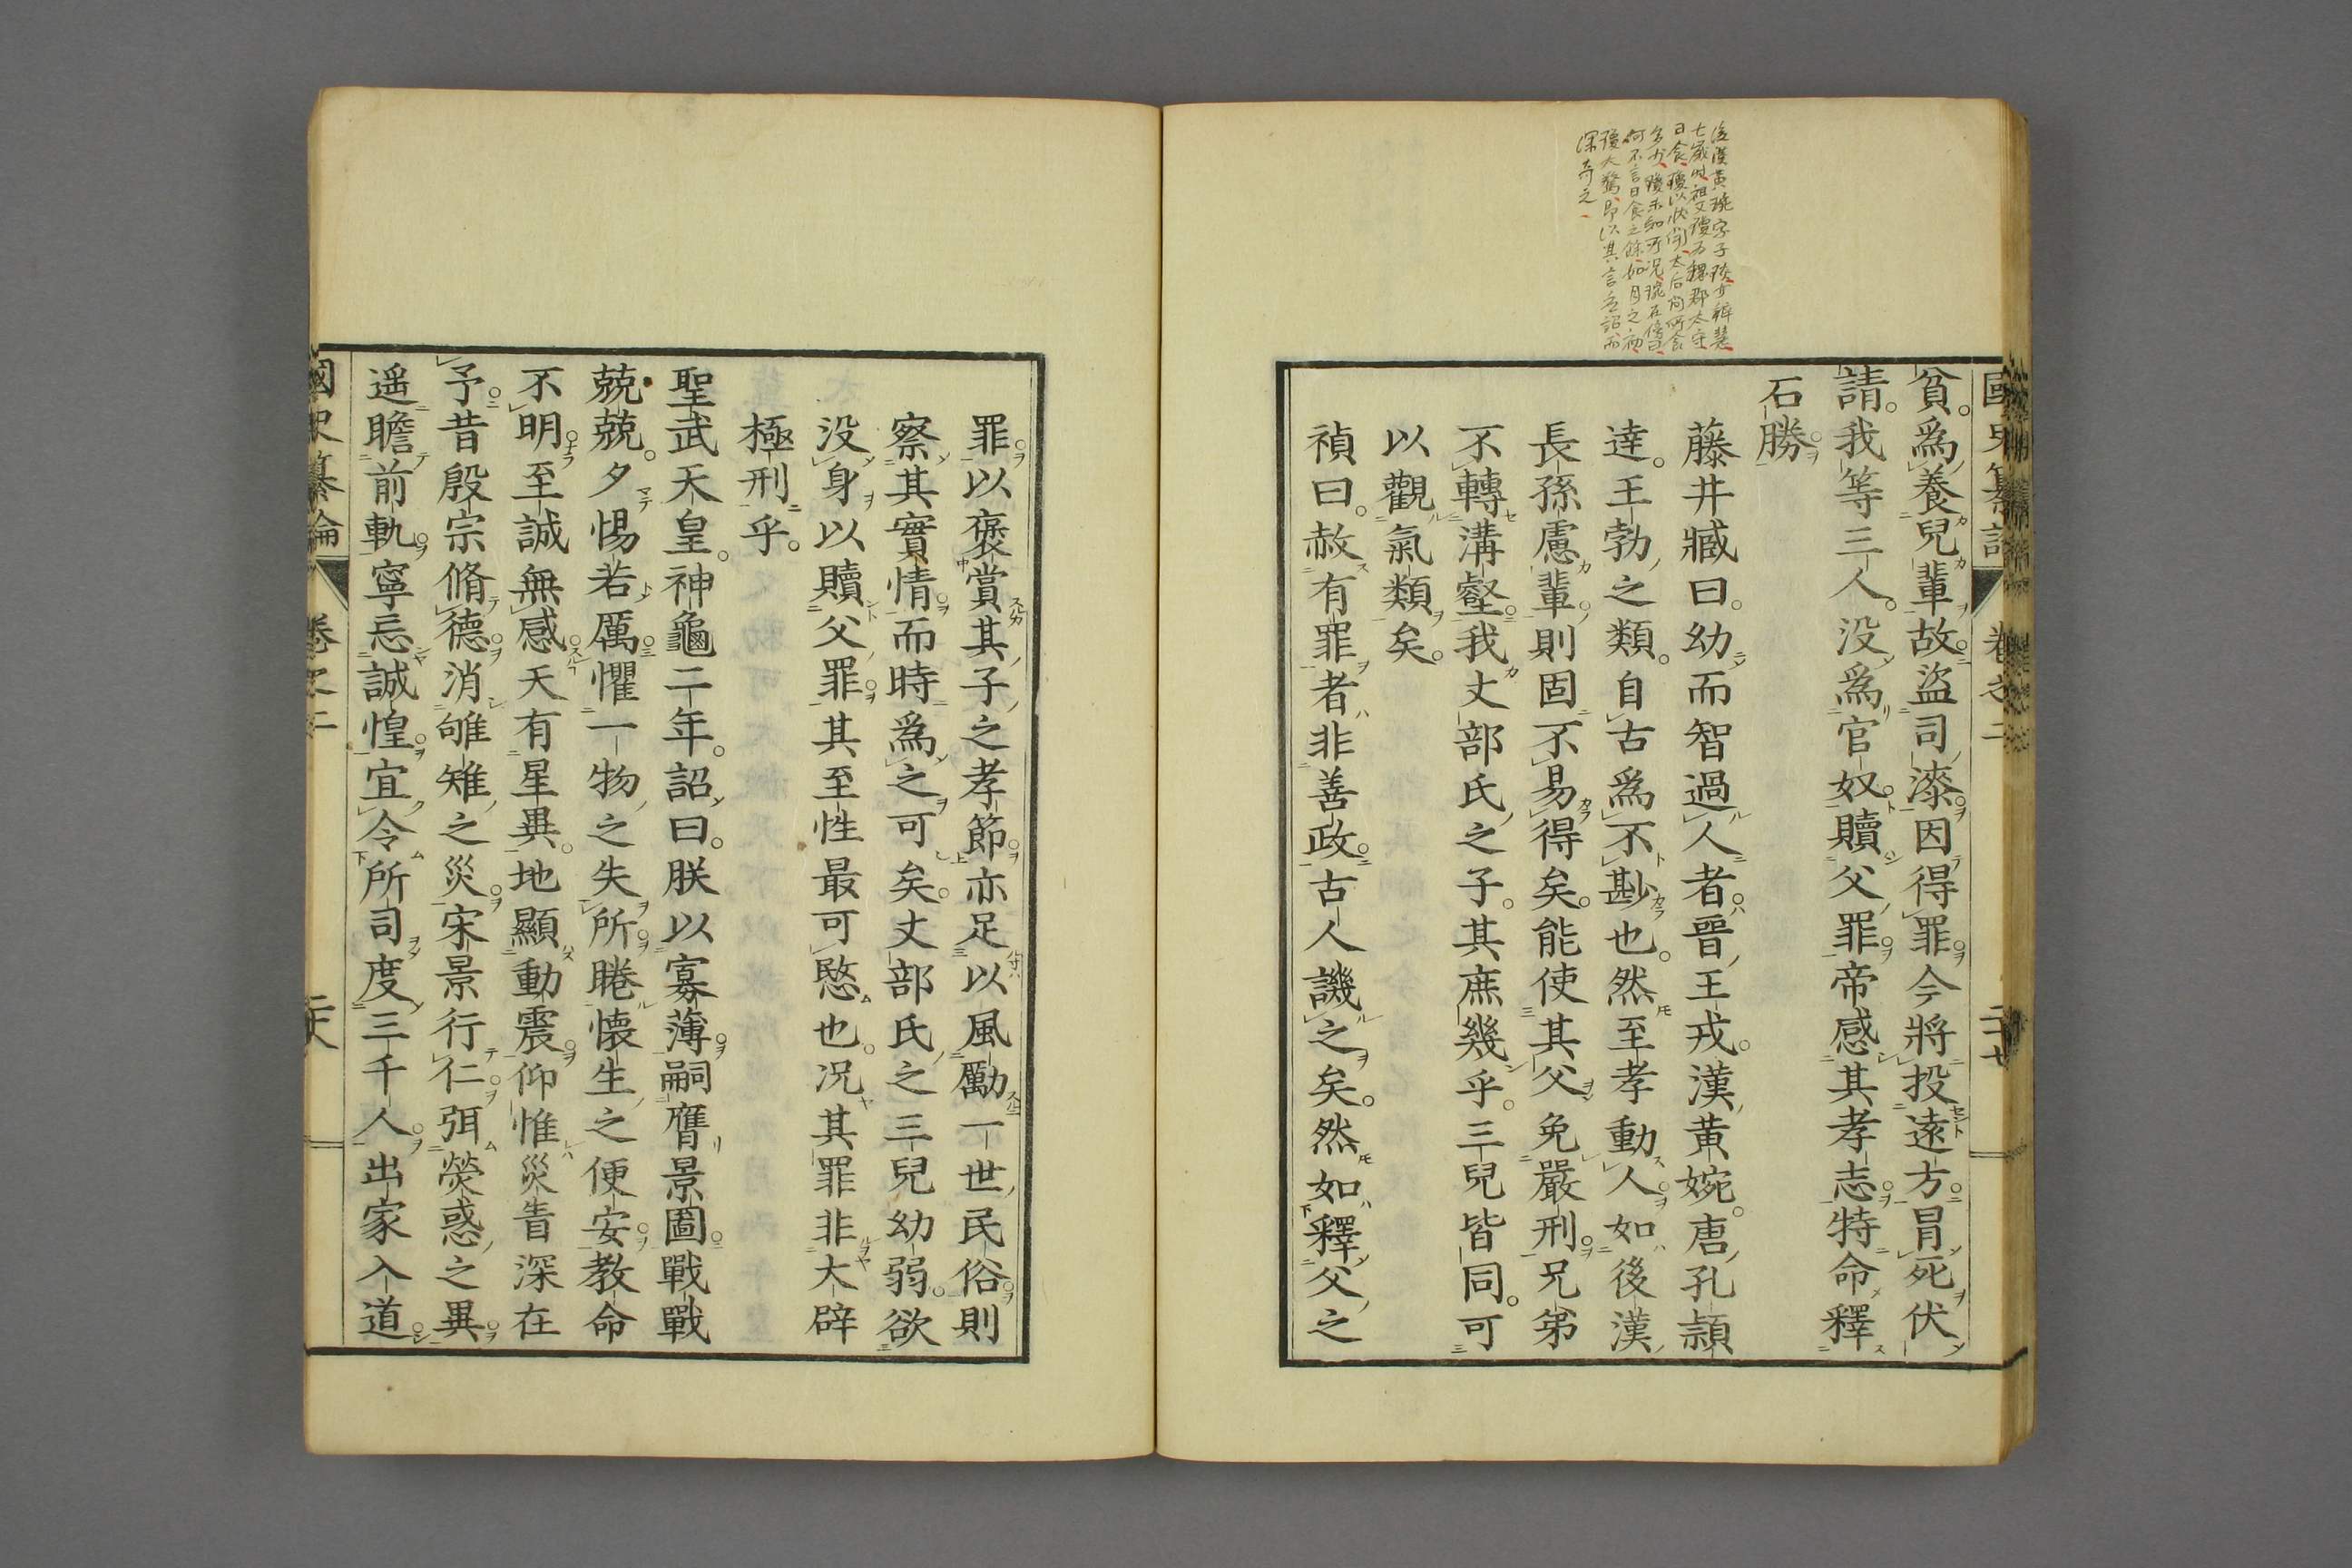 後漢黃琬字子琰少辯慧
七歲時祖父瓊為魏郡太守
日食瓊以狀聞太后問所食
多少瓊未知所況琬在傍曰
何不言日食之餘如月之初
瓊大驚即以其言應詔而
深奇之
國史纂論 卷之二 二十七
貧爲養兒輩故盜司漆因得罪今將投遠方冒死伏
請我等三人没爲官奴贖父罪帝感其孝志特命釋
石勝
藤井臧曰幼而智過人者晉王戎漢黃婉唐孔頴
達王勃之類自古爲不尠也然至孝動人如後漢
長孫慮輩則固不易得矣能使其父免嚴刑兄弟
不轉溝壑我丈部氏之子其庶幾乎三兒皆同可
以觀氣類矣
禎曰赦有罪者非善政古人譏之矣然如釋父之
罪以褒賞其子之孝節亦足以風勵一世民俗則
察其實情而時爲之可矣丈部氏之三兒幼弱欲
没身以贖父罪其至性最可愍也況其罪非大辟
極刑乎
聖武天皇神龜二年詔曰朕以寡薄嗣膺景圖戰戰
兢兢夕惕若厲懼一物之失所睠懐生之便安教命
不明至誠無感天有星異地顯動震仰惟災眚深在
予昔殷宗脩德消雊雉之災宋景行仁弭熒惑之異
遥瞻前軌寧忘誠惶宜令所司度三千人出家入道
國史纂論 卷之二